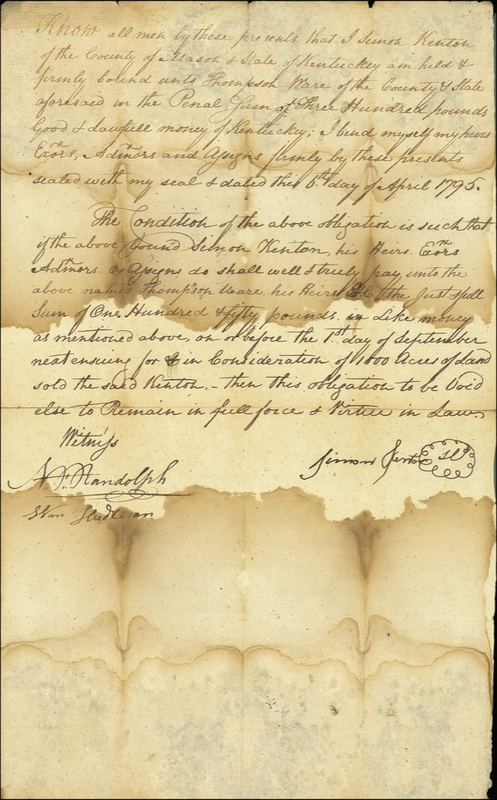 Know all men by these presents that I Simon Kenton
of the County of Mason & State of Kentuckey am held &
firmly bound unto Thompson Ware of the County & State
aforesaid in the Penal Sum of Three Hundred pounds
Good & lawfull money of Kentuckey; I bind myself my heirs
Exors, Admors and Assigns firmly by these presents
sealed with my seal & dated this 6th day of April 1795.
The Condition of the above obligation is such that
if the above bound Simon Kenton, his Heirs. Exors
Admors. Or Assigns do shall well & truly pay, unto the
above named Thompson Ware, his Heirs &c, the Just & full
Sum of One Hundred & fifty pounds, in Like money
as mentioned above, on or before the 1st day of September
next ensuing for & in Consideration of 1000 Acres of Land
sold the said Kenton, - then this obligation to be Void
else to Remain in full force & Virtue in Law
Witness
Simon Kenton
Randolph
Wm